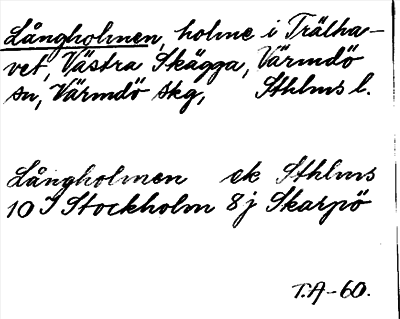 Långholmen, holme i Trälha-
vet, Västra Skägga, Värmdö
sn, Värmdö skg, Sthlms l.
Långholmen ek Sthlms
10 I Stockholm 8 j Skarpö
T.A-60.